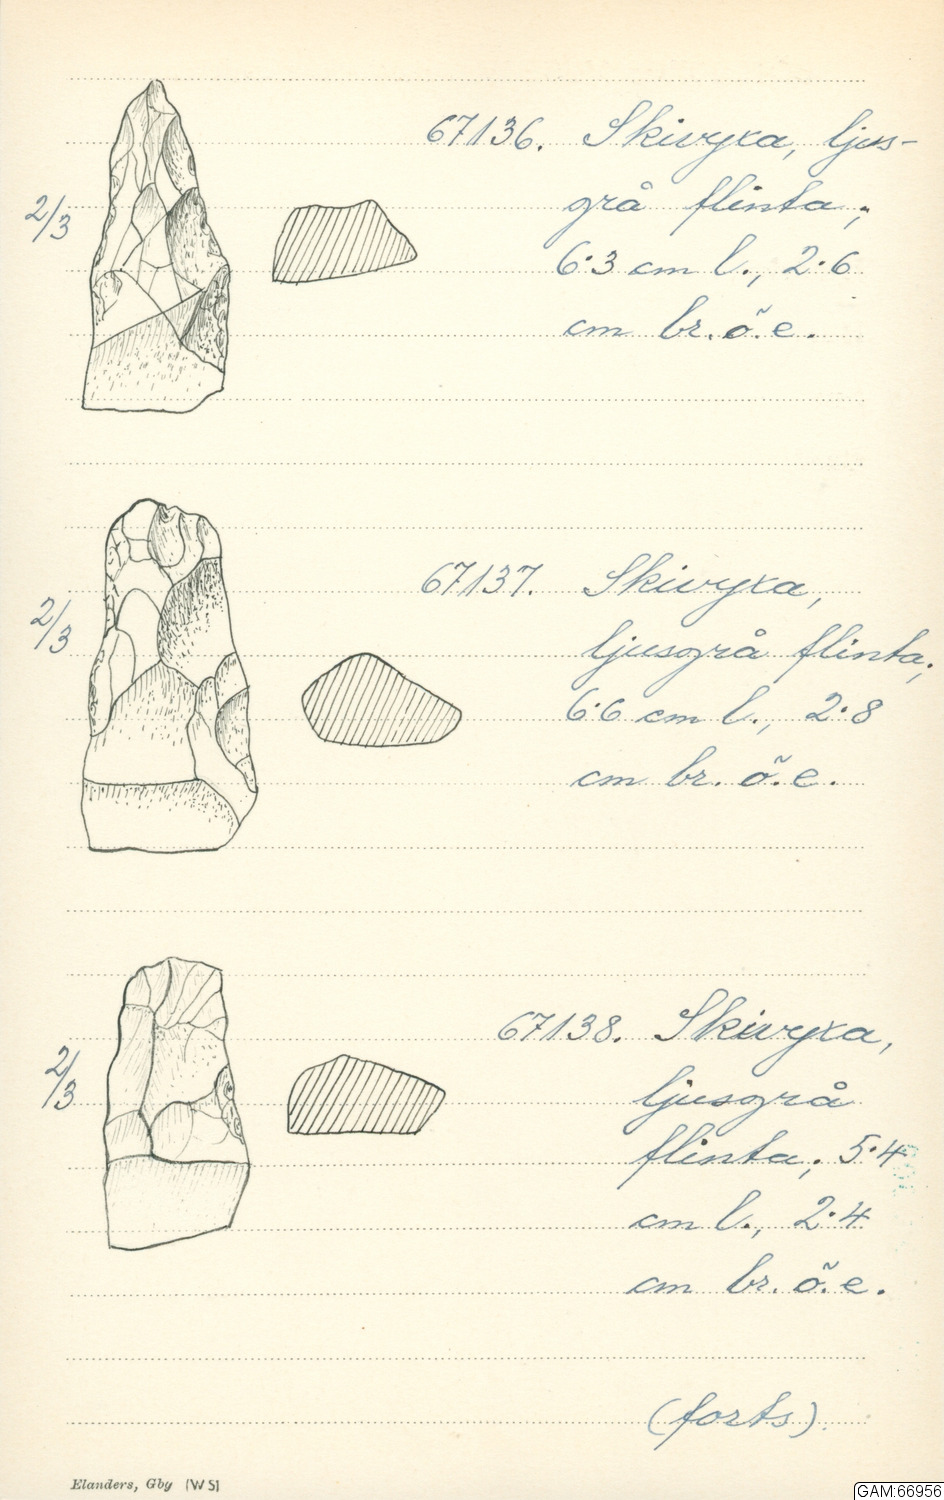 67136. Skivyxa, ljus-
2/3
grå flinta;
6·3 cm l., 2·6
cm br. ö. e.
67137. Skivyxa,
2/3
ljusgrå flinta;
6·6 cm l., 2·8
cm br. ö. e.
67138. Skivyxa,
2/3
ljusgrå
flinta; 5·4
cm l., 2·4
cm br. ö. e.
(forts).
Elanders, Gby (WS)
GAM:66956